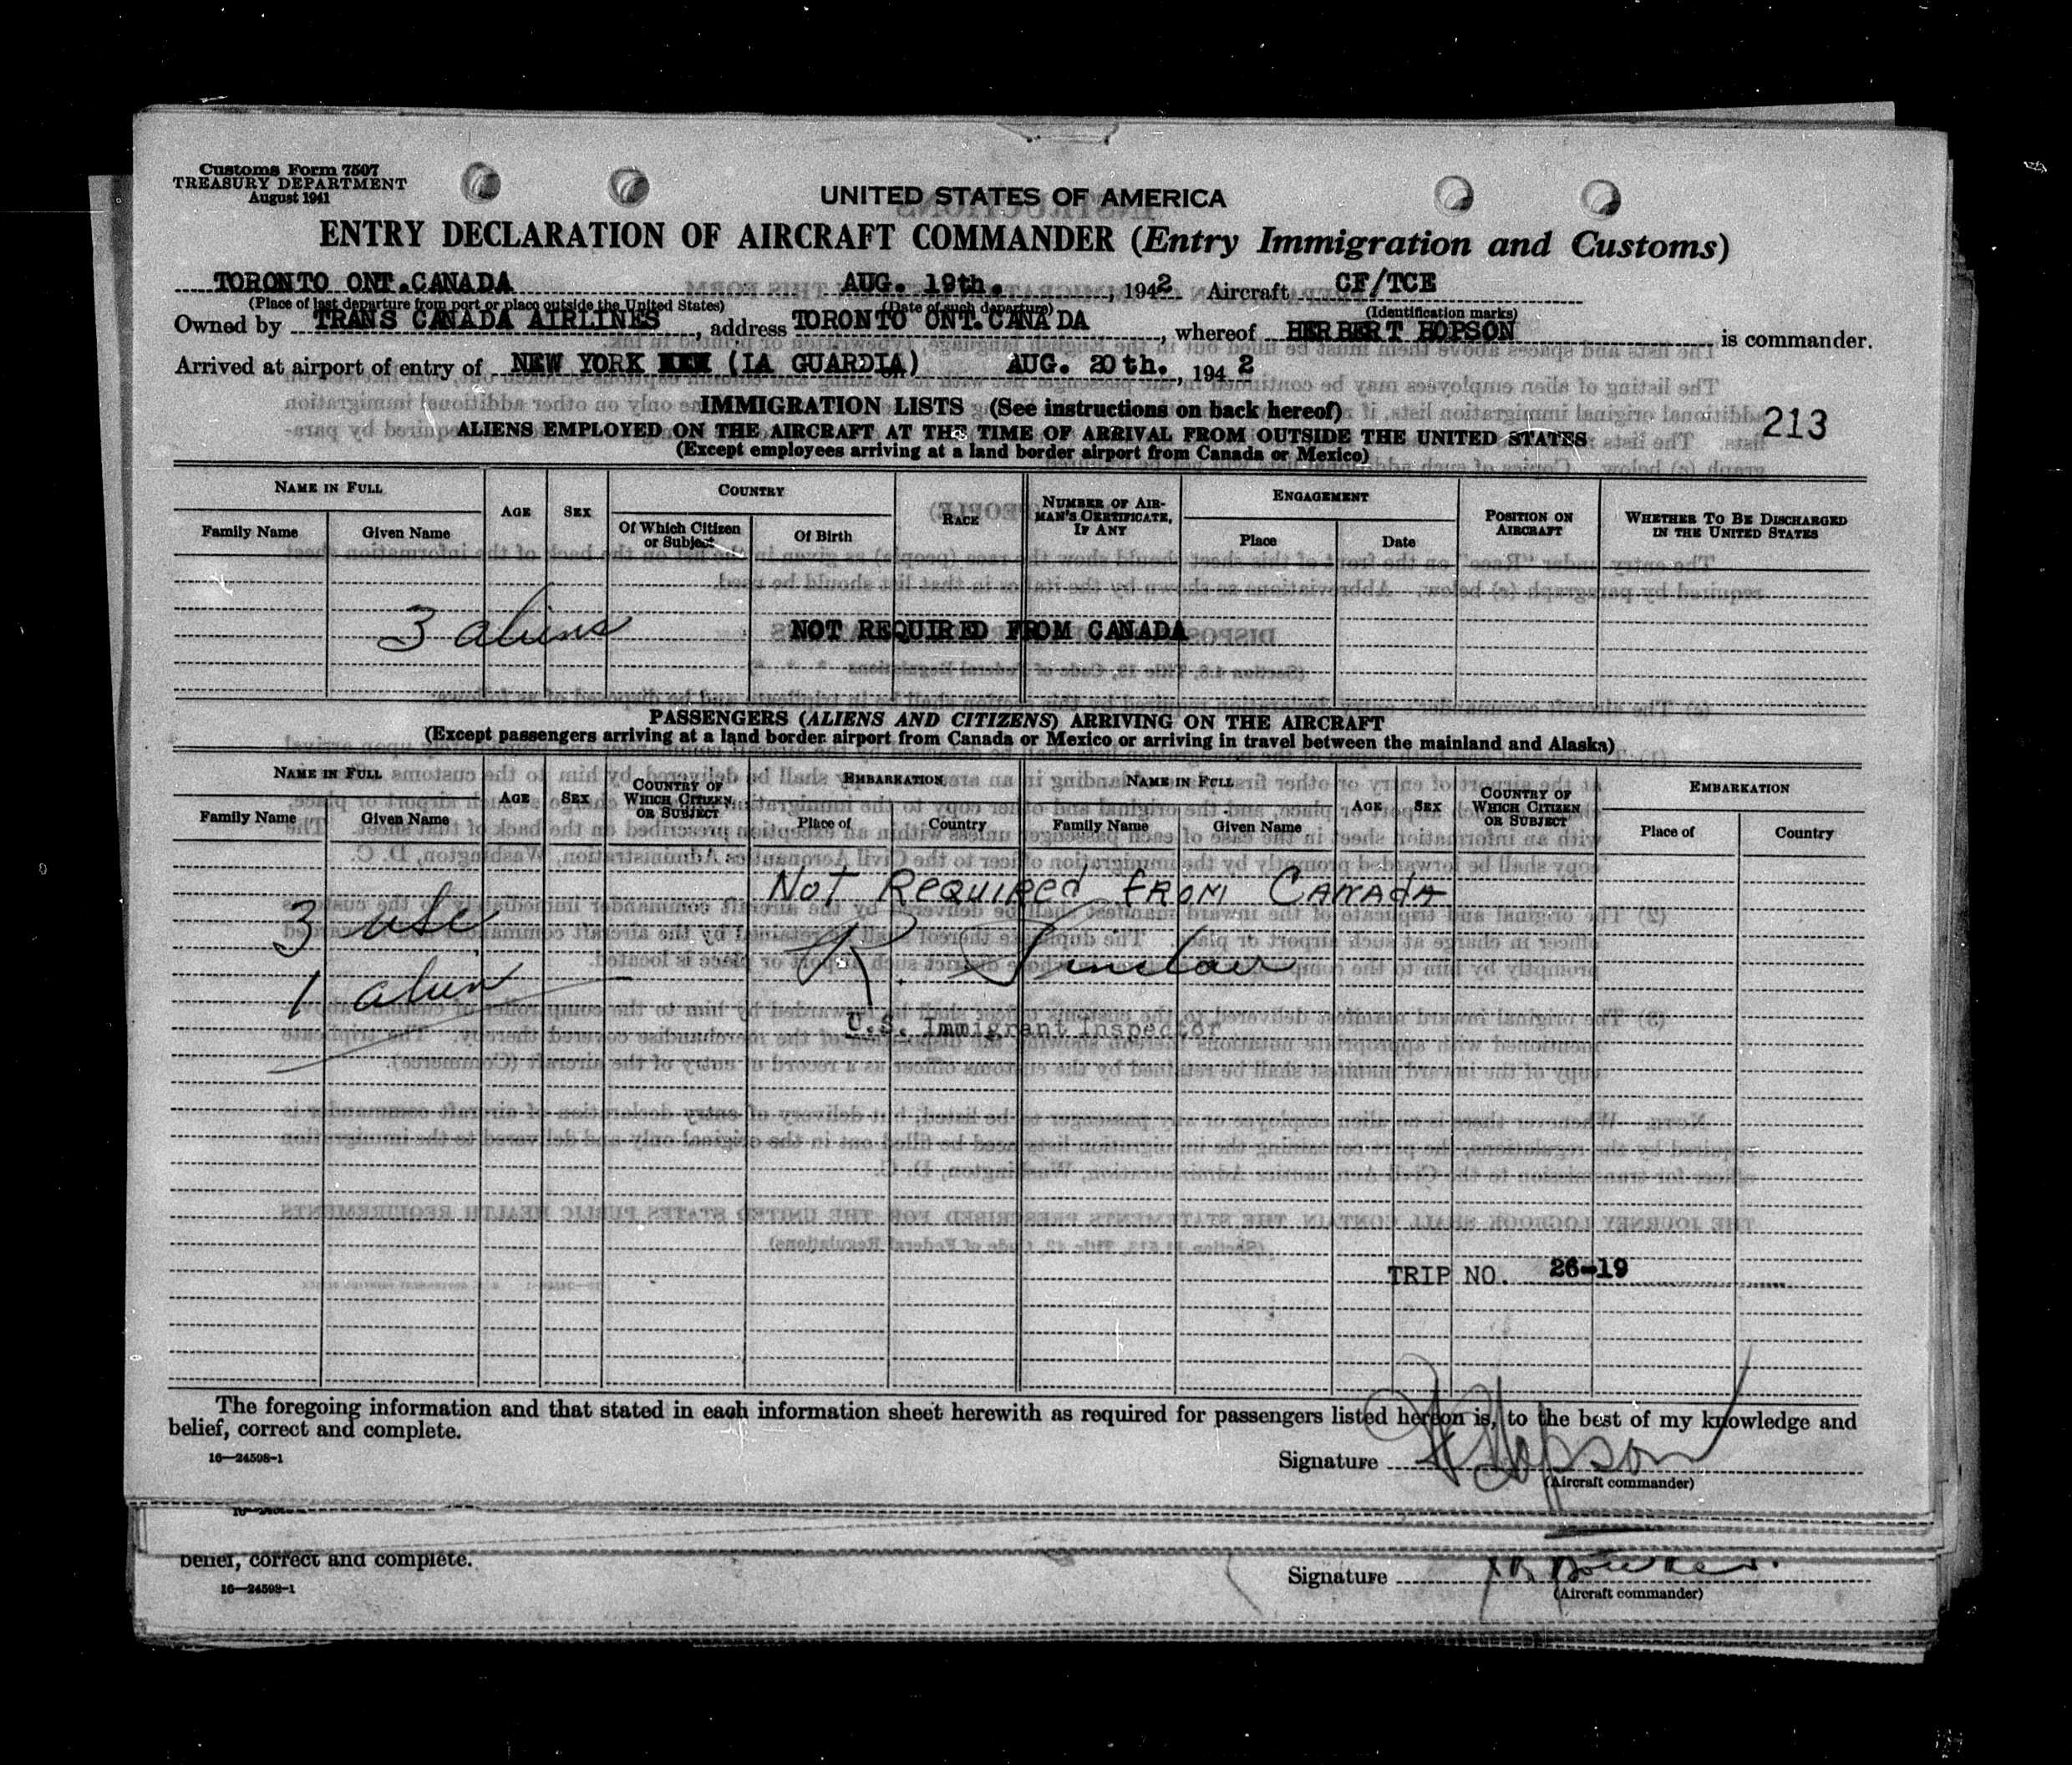 Customs Form 7507
TREASURY DEPARTMENT
August 1941
UNITED STATES OF AMERICA
ENTRY DECLARATION OF AIRCRAFT COMMANDER (Entry Immigration and Customs)
TORONTO ONT.CANADA AUG. 19th. , 1942 Aircraft CF/TCE
(Place of last departure from port or place outside the United States) (Date of such departure) (Identification marks)
Owned by TRANS CANADA AIRLINES , address TORONTO ONT.CANADA , whereof HERBERT HOPSON is commander.
Arrived at airport of entry of NEW YORK (LA GUARDIA) AUG. 20th. , 1942
IMMIGRATION LISTS (See instructions on back hereof)
213
ALIENS EMPLOYED ON THE AIRCRAFT AT THE TIME OF ARRIVAL FROM OUTSIDE THE UNITED STATES
(Except employees arriving at a land border airport from Canada or Mexico)
NAME IN FULL AGE SEX COUNTRY RACE NUMBER OF AIRMAN'S CERTIFICATE, IF ANY ENGAGEMENT POSITION ON AIRCRAFT WHETHER TO BE DISCHARGED IN THE UNITED STATES
Family Name Given Name Of Which Citizen or Subject Of Birth Place Date
3 aliens NOT REQUIRED FROM CANADA
PASSENGERS (ALIENS AND CITIZENS) ARRIVING ON THE AIRCRAFT
(Except passengers arriving at a land border airport from Canada or Mexico or arriving in travel between the mainland and Alaska)
NAME IN FULL AGE SEX COUNTRY OF WHICH CITIZEN OR SUBJECT EMBARKATION NAME IN FULL AGE SEX COUNTRY OF WHICH CITIZEN OR SUBJECT EMBARKATION
Family Name Given Name Place of Country Family Name Given Name Place of Country
Not Required from Canada
3 usc
Sinclair
1 alien
U.S. Immigrant Inspector
TRIP NO. 26-19
The foregoing information and that stated in each information sheet herewith as required for passengers listed hereon is, to the best of my knowledge and
belief, correct and complete.
16—24598-1
Signature H Hopson
(Aircraft commander)
belief, correct and complete.
16—24598-1
Signature
(Aircraft commander)